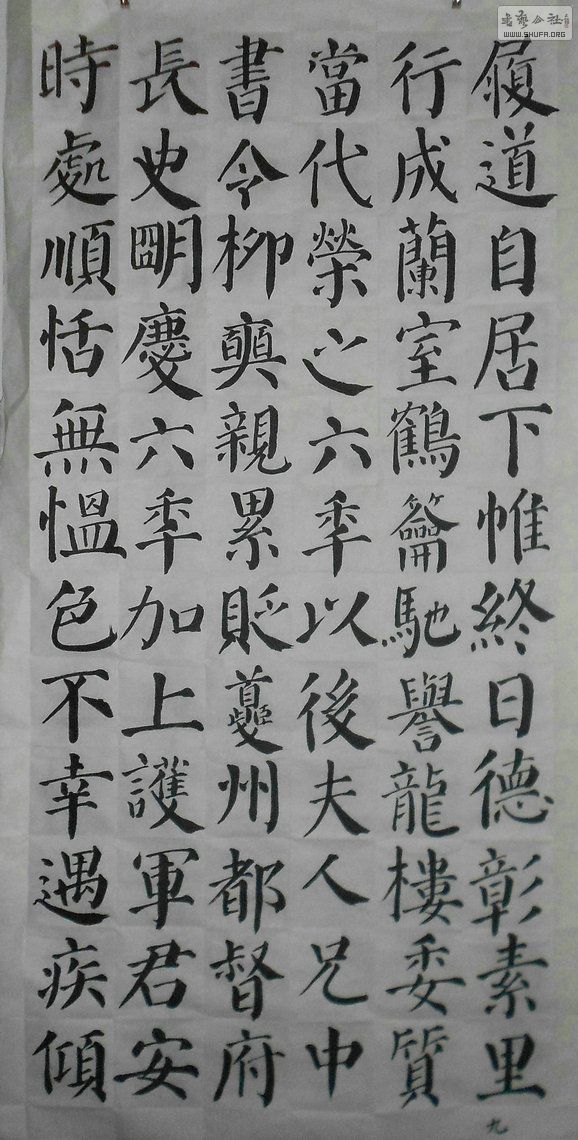 履道自居下帷終日德彰素里
行成蘭室鶴籥馳譽龍樓委質
當代榮之六年以後夫人兄中
書令柳奭親累貶夔州都督府
長史明慶六年加上護軍君安
時處順恬無慍色不幸遇疾傾
九
WWW.SHUFA.ORG